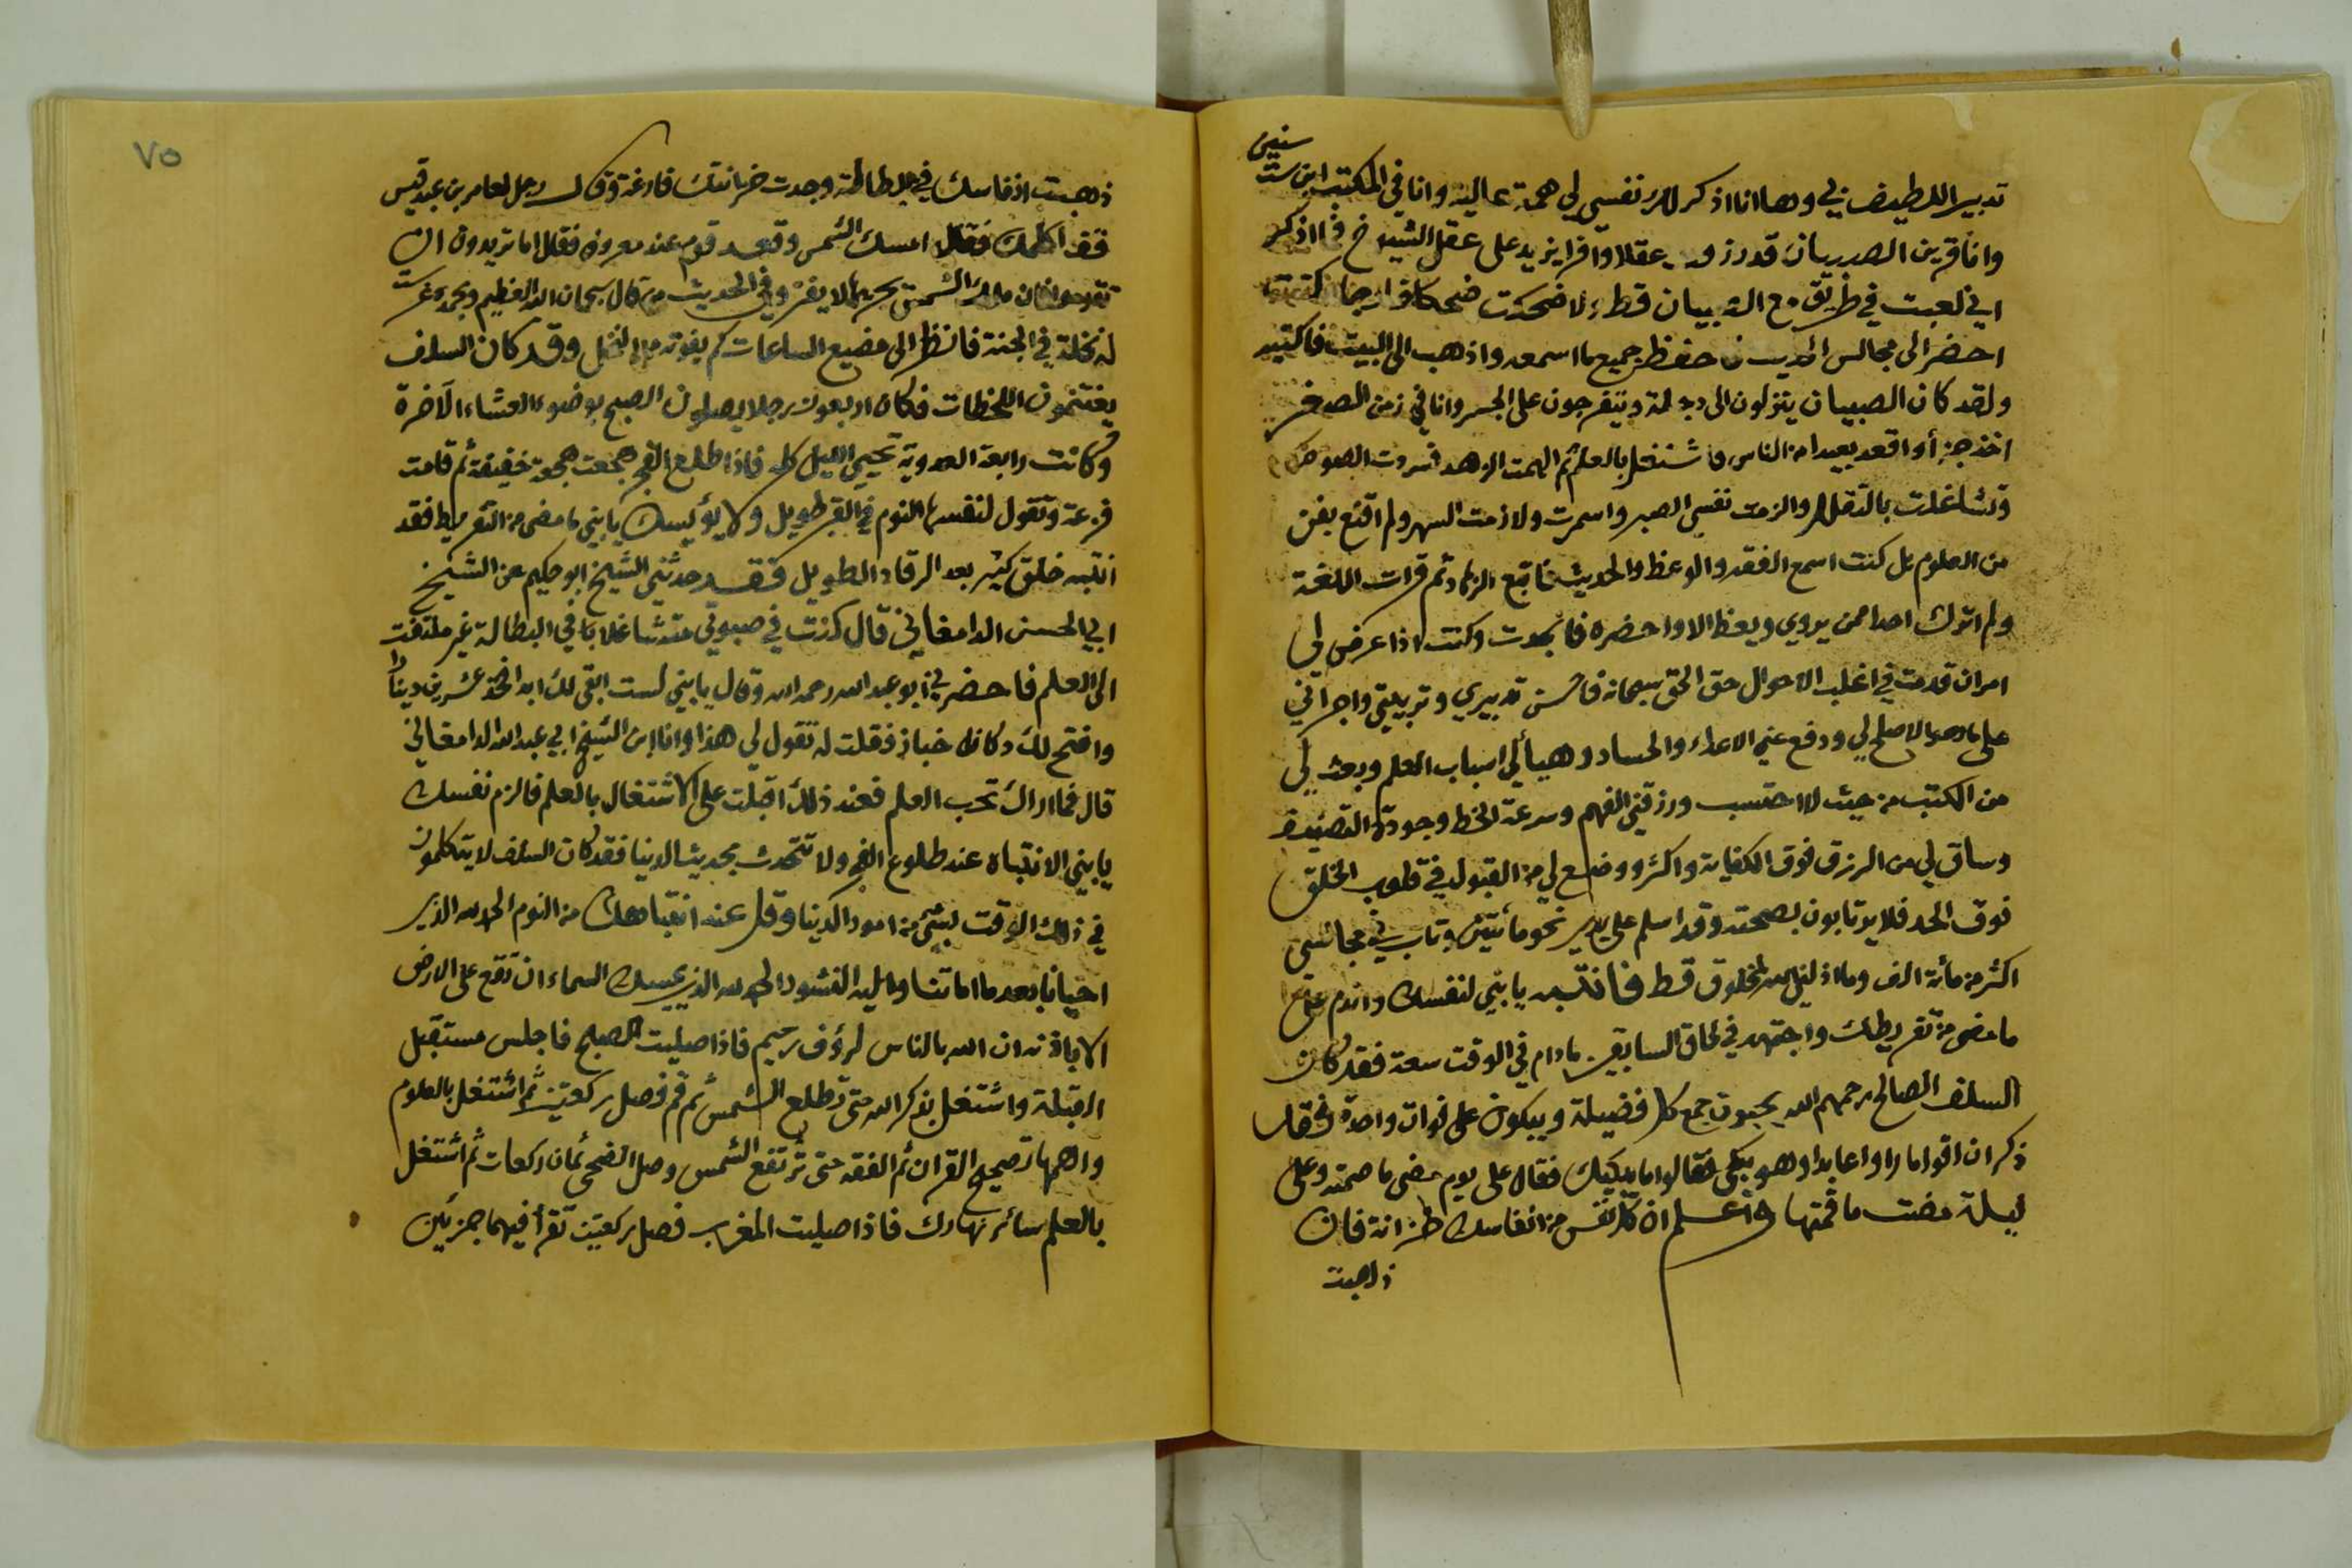 سنين
تدبير اللطيف بي وها انا اذكر لك نفسي لي همة عالية وانا في المكتب ابن ست
وانا قرين الصبيان قد رزقت عقلا وافرا يزيد على عقل الشيوخ فما اذكر
اني لعبت في طريق مع الصبيان قط ولا ضحكت ضحكا خارجا كنت
احضر الى مجالس الحديث فاحفظ جميع ما اسمعه واذهب الى البيت فاكتبه
ولقد كان الصبيان ينزلون الى دجلة ويتفرجون على الجسر وانا في زمن الصغر
اخذ جزأ واقعد بعيدا من الناس فاشتغل بالعلم ثم الهمت الزهد فسردت الصوم
وتشاغلت بالتقلل والزمت نفسي الصبر واسمرت ولازمت السهر ولم اقنع بفن
من العلوم بل كنت اسمع الفقه والوعظ والحديث فاتبع الزهاد ثم قرات اللغة
ولم اترك احدا ممن يروي ويعظ الا واحضره فاتجودت وكنت اذا عرض لي
امران قدمت في اغلب الاحوال حق الحق سبحانه فاحسن تدبيري وتربيتي واجراني
على ما هو الاصلح لي ودفع عني الاعداء والحساد وهيأ لي اسباب العلم وبعث لي
من الكتب من حيث لا احتسب ورزقني الفهم وسرعة الخط وجودة التصنيف
وساق لي من الرزق فوق الكفاية واكثر ووضع لي من القبول في قلوب الخلق
فوق الحد فلا يرتابون بصحته وقد اسلم على يدي نحو مأتين وتاب في مجالسي
اكثر من مأئة الف وما اذلني الله لمخلوق قط فانتبه يا بني لنفسك واندم على
ما مضى من تفريطك واجتهد في لحاق السابقين ما دام في الوقت سعة فقد كان
السلف الصالح رحمهم الله يحبون جمع كل فضيلة ويبكون على فوات واحدة فقد
ذكر ان اقواما راوا عابدا وهو يبكي فقالوا ما يبكيك فقال على يوم مضى ما صمته وعلى
ليلة مضت ما قمتها واعلم ان كل نفس من انفاسك خزانة فان
ذهبت
٧٥
ذهبت انفاسك في البطالة وجدت خزانتك فارغة وقال رجل لعامر بن عبد قيس
قف اكلمك فقال امسك الشمس وقعد قوم عند معروف فقال اما تريدون ان
تقوموا فان ملك الشمس يجرها لا يفتر وفي الحديث من قال سبحان الله العظيم وبحمده غرست
له نخلة في الجنة فانظر الى مضيع الساعات كم يفوته من النخل وقد كان السلف
يغتنمون اللحظات فكان اربعون رجلا يصلون الصبح بوضوء العشاء الآخرة
وكانت رابعة العدوية تحيي الليل كله فاذا طلع الفجر هجعت هجعة خفيفة ثم قامت
فزعة وتقول لنفسها النوم في القبر طويل ولا يؤيسك يا بني ما مضى من التفريط فقد
انتبه خلق كثير بعد الرقاد الطويل فقد حدثني الشيخ ابو حكيم عن الشيخ
ابي الحسن الدامغاني قال كنت في صبوتي متشاغلا بالبطالة غير ملتفت
الى العلم فاحضرني ابو عبد الله رحمه الله وقال يا بني لست ابقى لك ابدا فخذ عشرين دينارا
وافتح لك دكان خباز فقلت له تقول لي هذا وانا ابن الشيخ ابي عبد الله الدامغاني
قال فما اراك تحب العلم فعند ذلك اقبلت على الاشتغال بالعلم فالزم نفسك
يا بني الانتباه عند طلوع الفجر ولا تتحدث بحديث الدنيا فقد كان السلف لا يتكلمون
في ذلك الوقت بشئ من امور الدنيا وقل عند انتباهك من النوم الحمد لله الذي
احيانا بعد ما اماتنا واليه النشور الحمد لله الذي يمسك السماء ان تقع على الارض
الا باذنه ان الله بالناس لرؤف رحيم فاذا صليت الصبح فاجلس مستقبل
القبلة واشتغل بذكر الله حتى تطلع الشمس ثم قم فصل ركعتين ثم اشتغل بالعلوم
واهمها تصحيح القران ثم الفقه حتى ترتفع الشمس وصل الضحى ثمان ركعات ثم اشتغل
بالعلم سائر نهارك فاذا صليت المغرب فصل ركعتين تقرأ فيهما جزئين